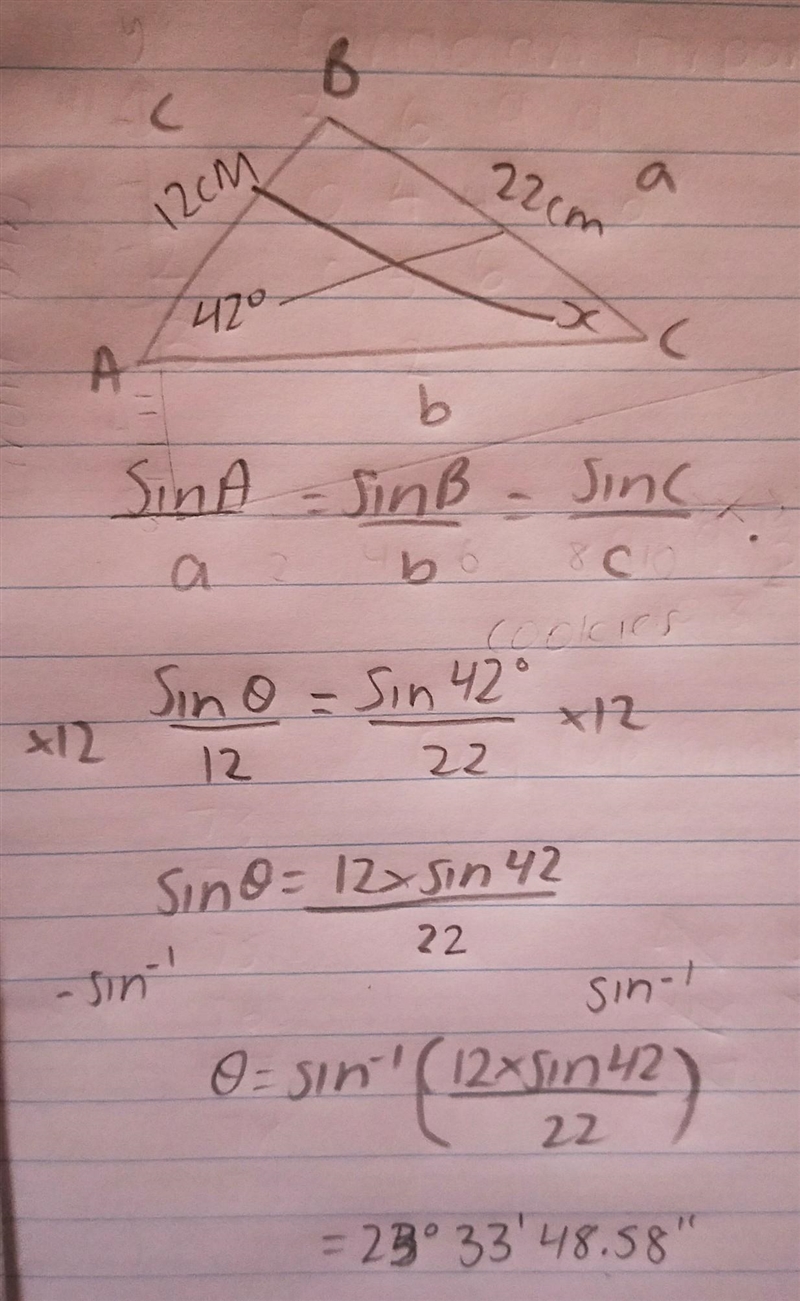 B
C
12cm
22cm
a
42°
x
A
C
b
SinA = SinB = SinC
a b c
cookies
x12 Sin θ = Sin 42° x12
12 22
Sin θ = 12 x sin 42
22
- sin⁻¹ sin⁻¹
θ = sin⁻¹ (12 x sin 42)
22
= 23° 33' 48.58"